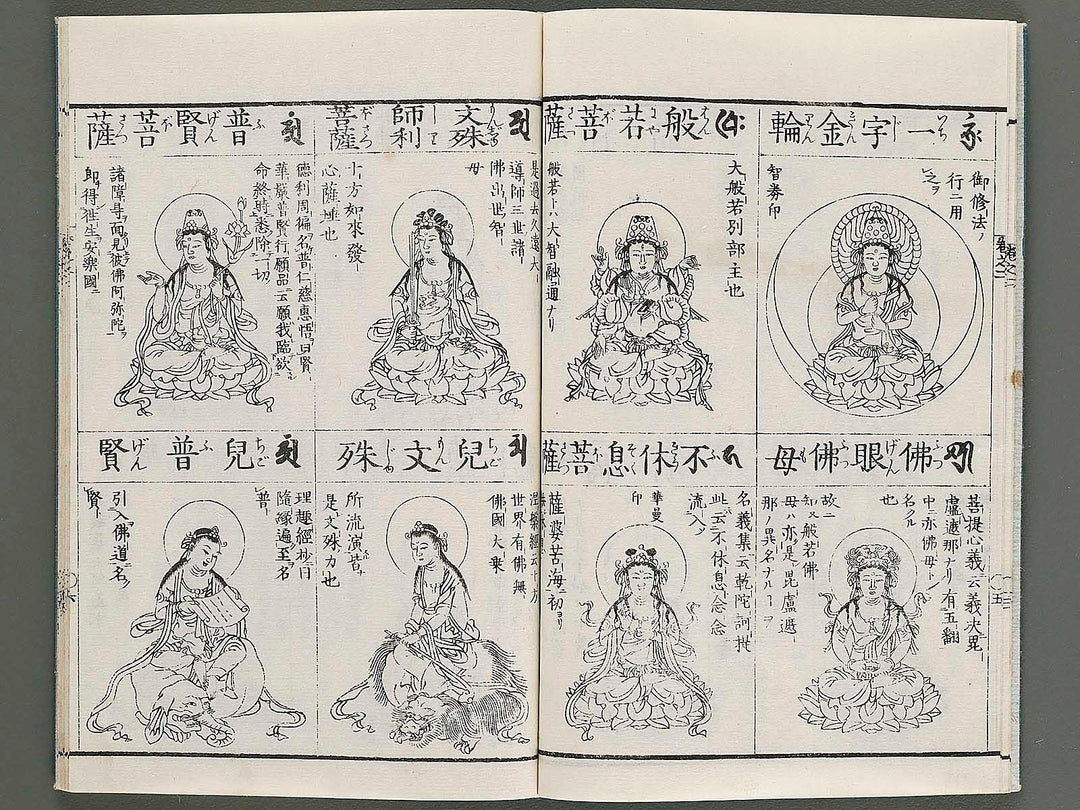 一字金輪
御修法ノ
行ニ用
智拳印
般若菩薩
大般若別部主也
般若トハ大智融通ナリ
佛眼佛母
菩提心義云義决毘
盧遮那ナリ有五翻
中ニ亦佛母ト
名クル
也
故ニ
知ヌ般若佛
母ハ亦是毘盧遮
那ノ異名ナルコヲ
不休息菩薩
名義集云乾陀訶提
此云不休息念念
流入
華曼
印
薩婆若海初ヨリ
文殊師利菩薩
是過去久遠大
導師三世諸
佛出世智
母
十方如來發
心薩埵也
普賢菩薩
德利周徧名普仁慈惠悟曰賢
華嚴普賢行願品云願我臨欲
命終時悉除一切
諸障㝵面見彼佛阿弥陀
即得徃生安樂國
兒文殊
世界有佛無
佛國大乗
所流演昔
是文殊力也
兒普賢
理趣經抄曰
隨緣遍至名
普
引入佛道名
賢